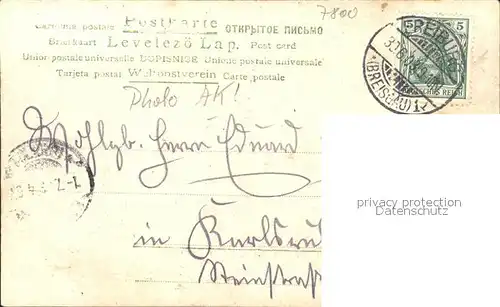 7800
Cartolina postale Postkarte ОТКРЫТОЕ ПИСЬМО
Brefkaart Levelező Lap. Post card
Union postale universelle DOPISNICE Unione postale universale
Tarjeta postal Weltpostverein Carte postale
5 5
FREIBURG
(BREISGAU) 1
DEUTSCHES REICH
Photo AK!
Wohlgb. Herrn Eduard
privacy protection
Datenschutz
in Karlsru
Steinstraß